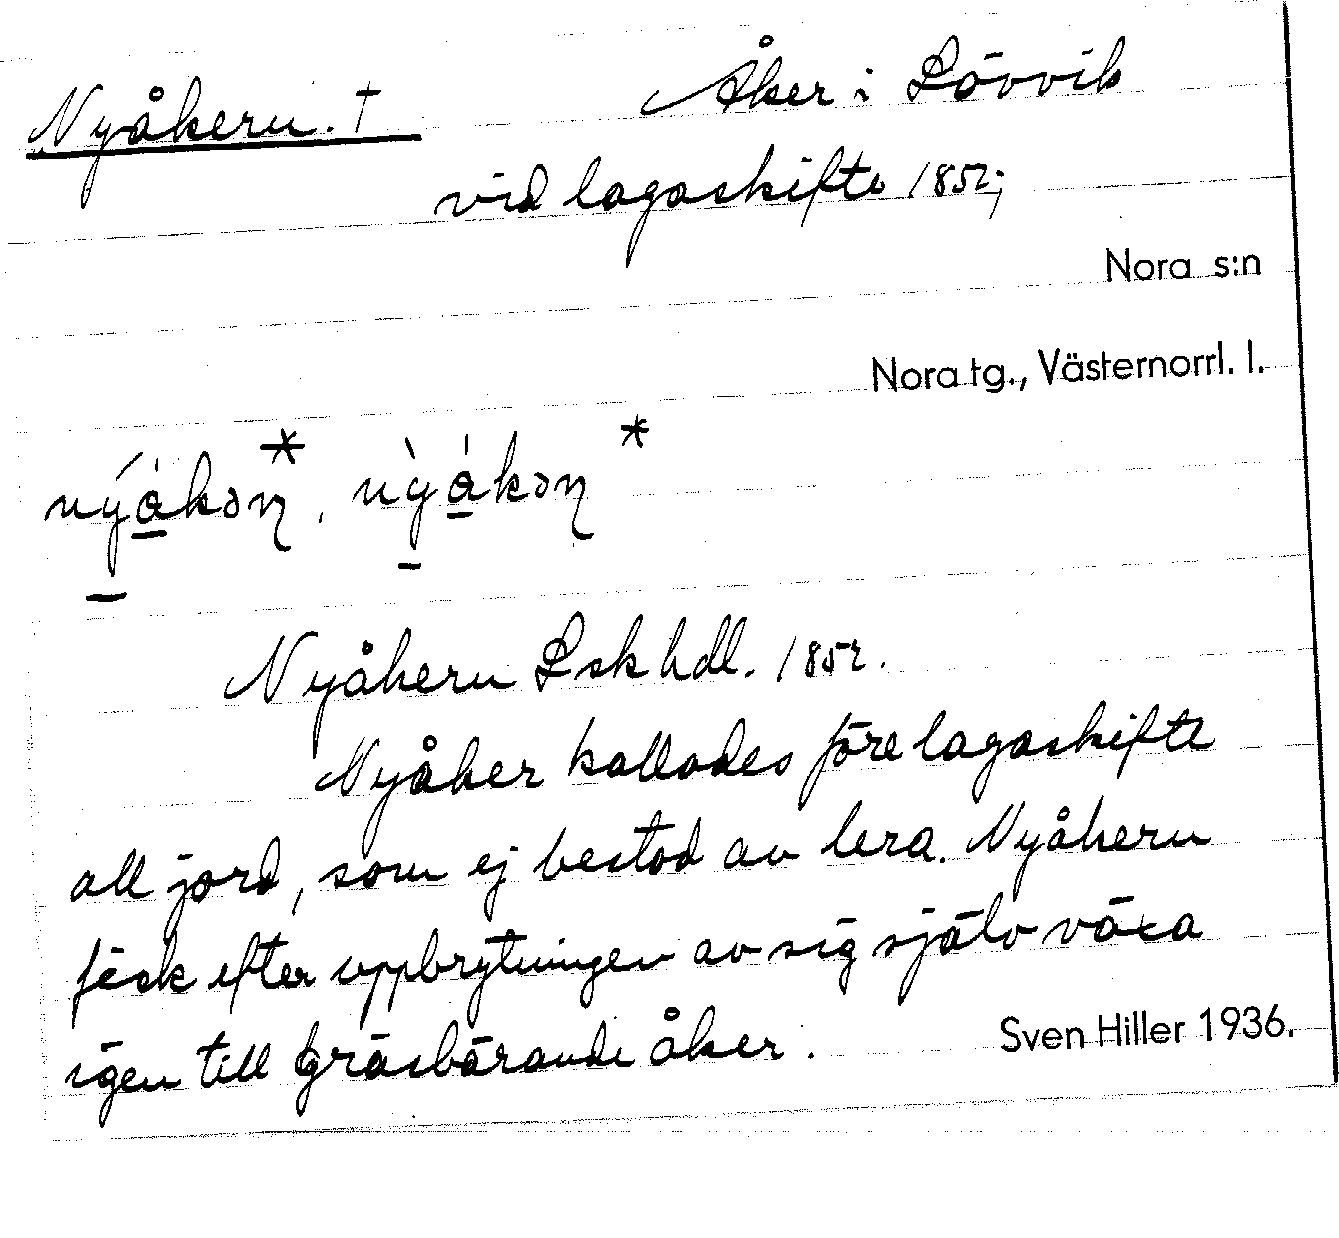 Nyåkern. † Åker i Lövvik
vid lagaskifte 1852;
Nora s:n
Nora tg., Västernorrl. l.
Nyåkern Lsk hdl. 1852.
Nyåker kallades före lagaskifte
all jord, som ej bestod av lera. Nyåkern
fick efter uppbrytningen av sig själv växa
igen till gräsbärande åker.
Sven Hiller 1936.